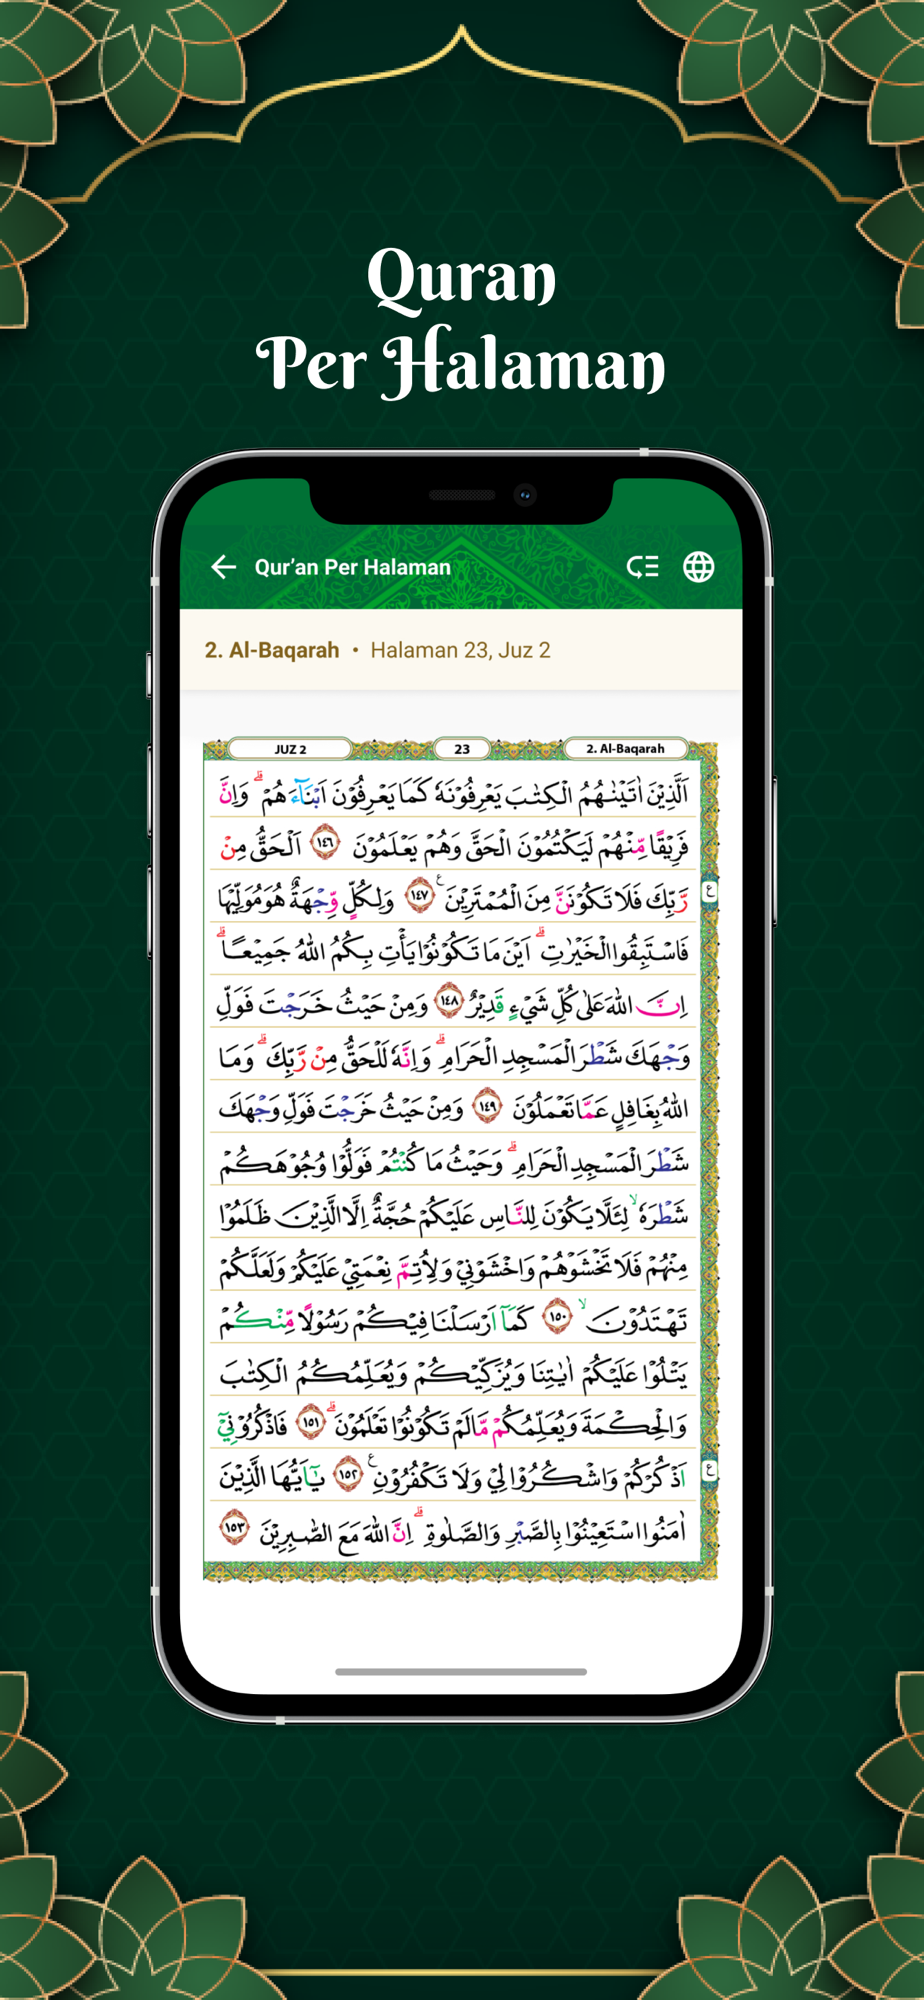 Quran
Per Halaman
Qur'an Per Halaman
2. Al-Baqarah • Halaman 23, Juz 2
JUZ 2
23
2. Al-Baqarah
اَلَّذِيْنَ اٰتَيْنٰهُمُ الْكِتٰبَ يَعْرِفُوْنَهٗ كَمَا يَعْرِفُوْنَ اَبْنَاۤءَهُمْ ۗ وَاِنَّ
فَرِيْقًا مِّنْهُمْ لَيَكْتُمُوْنَ الْحَقَّ وَهُمْ يَعْلَمُوْنَ ١٤٦ اَلْحَقُّ مِنْ
رَّبِّكَ فَلَا تَكُوْنَنَّ مِنَ الْمُمْتَرِيْنَ ࣖ ١٤٧ وَلِكُلٍّ وِّجْهَةٌ هُوَ مُوَلِّيْهَا
ع
فَاسْتَبِقُوا الْخَيْرٰتِ ۗ اَيْنَ مَا تَكُوْنُوْا يَأْتِ بِكُمُ اللّٰهُ جَمِيْعًا ۗ
اِنَّ اللّٰهَ عَلٰى كُلِّ شَيْءٍ قَدِيْرٌ ١٤٨ وَمِنْ حَيْثُ خَرَجْتَ فَوَلِّ
وَجْهَكَ شَطْرَ الْمَسْجِدِ الْحَرَامِ ۗ وَاِنَّهٗ لَلْحَقُّ مِنْ رَّبِّكَ ۗ وَمَا
اللّٰهُ بِغَافِلٍ عَمَّا تَعْمَلُوْنَ ١٤٩ وَمِنْ حَيْثُ خَرَجْتَ فَوَلِّ وَجْهَكَ
شَطْرَ الْمَسْجِدِ الْحَرَامِ ۗ وَحَيْثُ مَا كُنْتُمْ فَوَلُّوْا وُجُوْهَكُمْ
شَطْرَهٗ ۙ لِئَلَّا يَكُوْنَ لِلنَّاسِ عَلَيْكُمْ حُجَّةٌ اِلَّا الَّذِيْنَ ظَلَمُوْا
مِنْهُمْ فَلَا تَخْشَوْهُمْ وَاخْشَوْنِيْ وَلِاُتِمَّ نِعْمَتِيْ عَلَيْكُمْ وَلَعَلَّكُمْ
تَهْتَدُوْنَ ۙ ١٥٠ كَمَآ اَرْسَلْنَا فِيْكُمْ رَسُوْلًا مِّنْكُمْ
يَتْلُوْا عَلَيْكُمْ اٰيٰتِنَا وَيُزَكِّيْكُمْ وَيُعَلِّمُكُمُ الْكِتٰبَ
وَالْحِكْمَةَ وَيُعَلِّمُكُمْ مَّا لَمْ تَكُوْنُوْا تَعْلَمُوْنَ ۗ ١٥١ فَاذْكُرُوْنِيْٓ
اَذْكُرْكُمْ وَاشْكُرُوْا لِيْ وَلَا تَكْفُرُوْنِ ࣖ ١٥٢ يٰٓاَيُّهَا الَّذِيْنَ
ع
اٰمَنُوا اسْتَعِيْنُوْا بِالصَّبْرِ وَالصَّلٰوةِ ۗ اِنَّ اللّٰهَ مَعَ الصّٰبِرِيْنَ ١٥٣